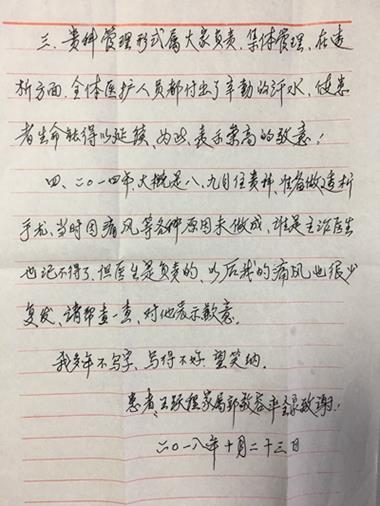 三、贵科管理形式属大家负责、集体管理、在透
析方面、全体医护人员都付出了辛勤的汗水、使患
者生命能得以延续、为此、表示崇高的致意！
四、二〇一四年、大概是八、九月住贵科、准备做透析
手术、当时因痛风等各种原因未做成、谁是主治医生
也记不得了、但医生是负责的、以后我的痛风也很少
复发、请帮查一查、对他表示歉意。
我多年不写字、写得不好、望笑纳。
患者、王跃程家属郭敬容率全家致谢！
二〇一八年十月二十三日